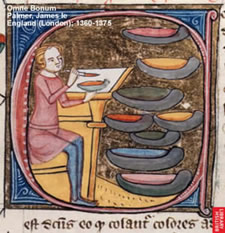 Omne Bonum
Palmer, James le
England (London); 1360-1375
est Deus eo q colant colores a
BRITISH
LIBRARY